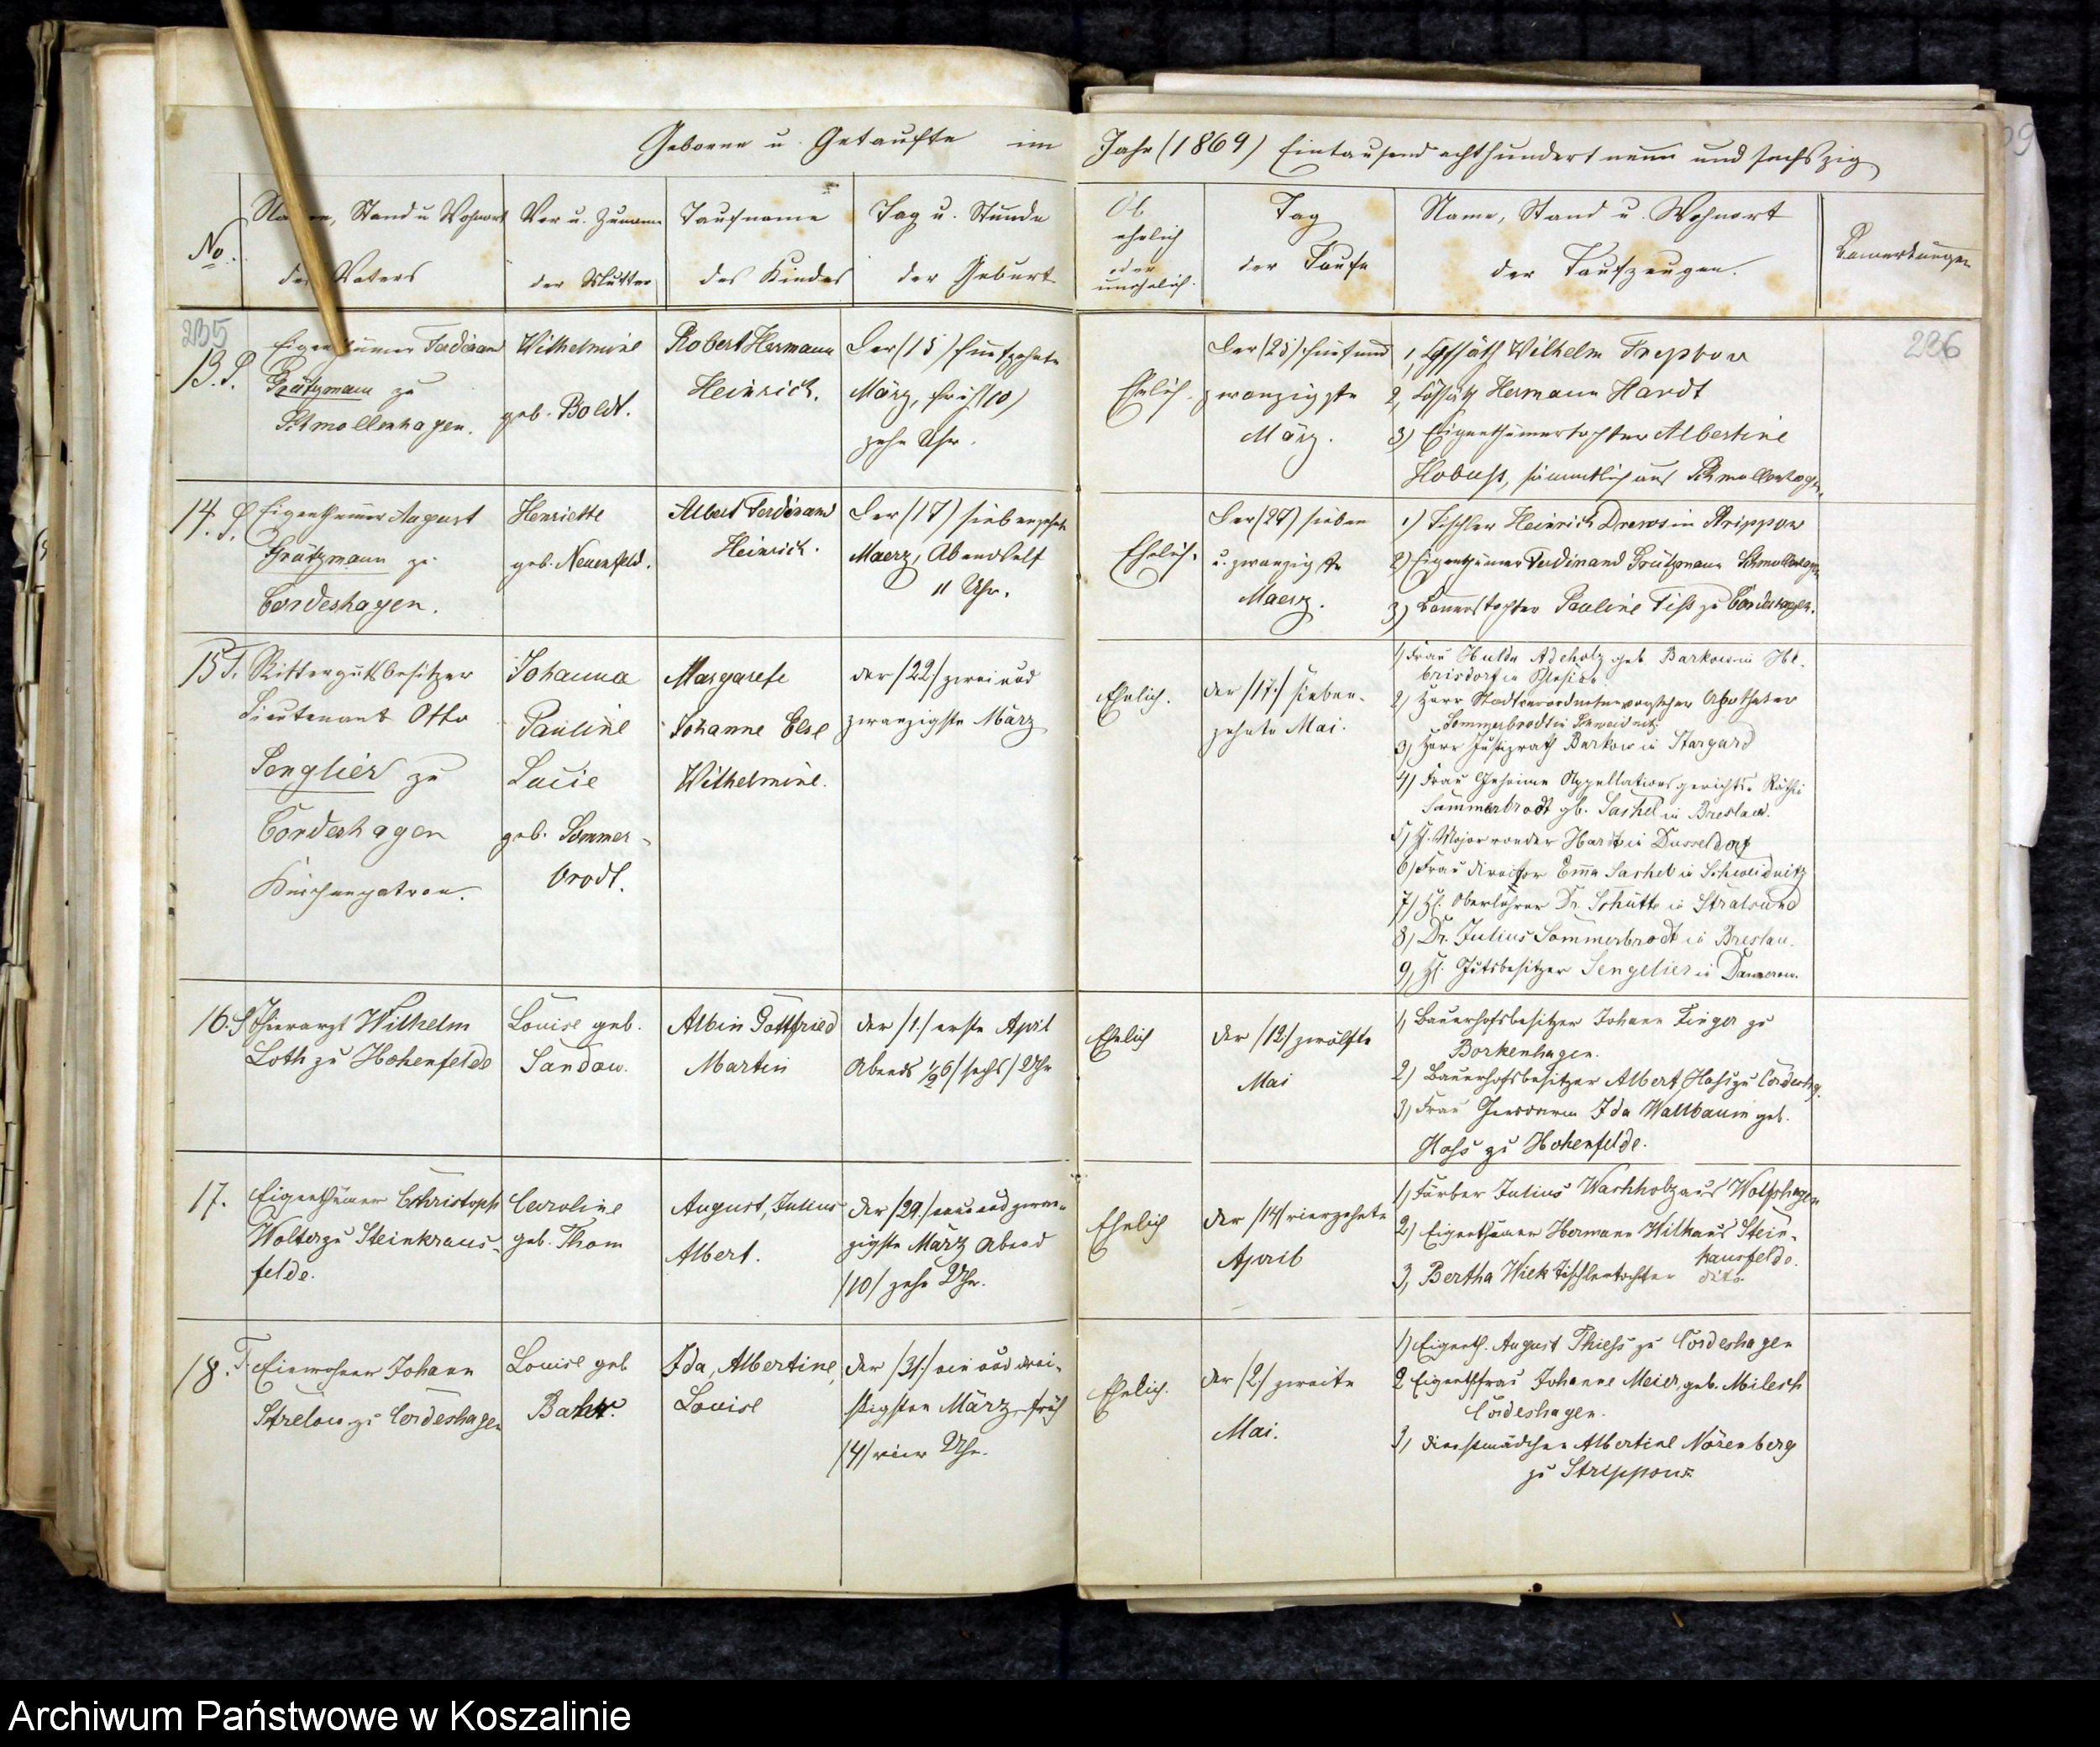 Geborne u. Getaufte im Jahr (1869) Eintausend achthundert neun und sechszig
No.
Namen, Stand u Wohnort
des Vaters
Vor u. Zuname
der Mutter
Taufname
des Kindes
Tag u. Stunde
der Geburt
Ob
ehelich
oder
unehelich.
Tag
der Taufe
Name, Stand u. Wohnort
der Taufzeugen.
Bemerkungen
235
236
13. S.
Eigenthümer Ferdinand
Grützmann zu
Schmollenhagen.
Wilhelmine
geb. Boldt.
Robert Hermann
Heinrich.
Der (15) fünfzehnte
März, früh (10)
zehn Uhr.
Ehelich.
Der (25) fünf und
zwanzigste
März.
1, Cossäth Wilhelm Treptow
2, Cossäth Hermann Hardt
3) Eigenthümertochter Albertine
Hobuss, sämmtlich aus Schmollenhagen.
14. S.
Eigenthümer August
Grützmann zu
Cordeshagen.
Henriette
geb. Neuenfeld.
Albert Ferdinand
Heinrich.
Der (17) siebenzehnte
Maerz, Abends elf
11 Uhr.
Ehelich.
Der (27) sieben
u. zwanzigste
Maerz.
1) Tischler Heinrich Drews in Strippow
2) Eigenthümer Ferdinand Grützmann Schmollenhagen
3) Bauerstochter Pauline Tiss zu Cordeshagen.
15 T.
Rittergutsbesitzer
Lieutenant Otto
Senglier zu
Cordeshagen
Kirchenpatron.
Johanna
Pauline
Lucie
geb. Sommer-
brodt.
Margarete
Johanne Else
Wilhelmine.
der /22/ zwei und
zwanzigste März
Ehelich.
der /17/ sieben-
zehnte Mai.
1) Frau Hulda Adeholz geb. Barkow in
2) Herr Stadtverordnetenvorsteher Apotheker
Sommerbrodt in Schweidnitz
3) Herr Justizrath Barkow in Stargard
4) Frau Geheime Appellationsgerichts-Räthin
Sommerbrodt gb. Sachel in Breslau.
5) H. Major von der Hardt in Dusseldorf
6) Frau Director Emma Sachel in Schweidnitz
7) H. Oberlehrer Dr. Schütte in Stralsund
8) Dr. Julius Sommerbrodt in Breslau.
9, H. Gutsbesitzer Sengelier in
16. S
Thierarzt Wilhelm
Loth zu Hohenfelde
Louise geb.
Sandow.
Albin Gottfried
Martin
der /1./ erste April
Abends ½6/sechs/ Uhr
Ehelich
der /12/ zwölfte
Mai
1, Bauerhofsbesitzer Johann Finger zu
Borkenhagen.
2) Bauerhofsbesitzer Albert Hass zu Cordeshg.
3) Frau Ida Wallbaum geb.
Hass zu Hohenfelde.
17.
Eigenthümer Christoph
Wolter zu Steinkraus-
felde.
Caroline
geb. Thom
August, Julius
Albert.
der /29./ neun und zwan-
zigste März Abend
/10/ zehn Uhr.
Ehelich
der /14/ vierzehnte
April
1, Färber Julius Wachholz aus Wolfshagen
2) Eigenthümer Hermann Wilk aus Stein-
kausfelde.
3, Bertha Wilk Tischlertochter dito
18. T.
Einwohner Johann
Strelow zu Cordeshagen
Louise geb
Ida, Albertine,
Louise
der /31./ ein und drei-
ßigsten März, früh
/4/ vier Uhr.
Ehelich.
der /2/ zweite
Mai.
1) Eigenth. August Thiess zu Cordeshagen
2 Eigenthfrau Johanne Meier, geb. Milesch
Cordeshagen.
3, Dienstmädchen Albertine Nörenberg
zu Strippow.
Archiwum Państwowe w Koszalinie